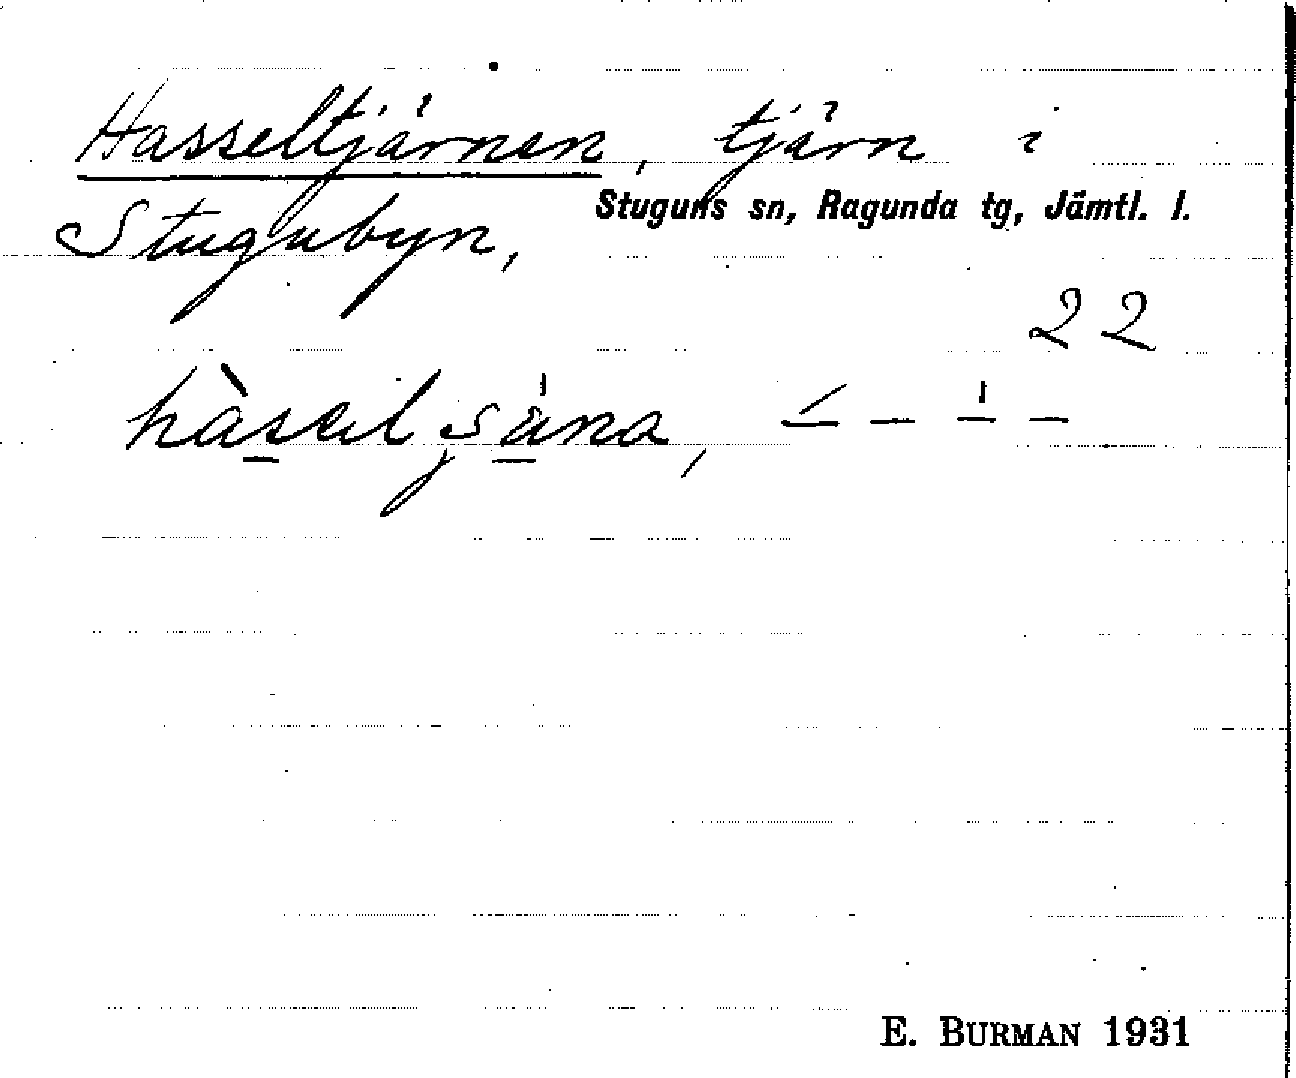 Hasseltjärnen, tjärn i
Stuguns sn, Ragunda tg, Jämtl. l.
Stugubyn,
22
E. BURMAN 1931